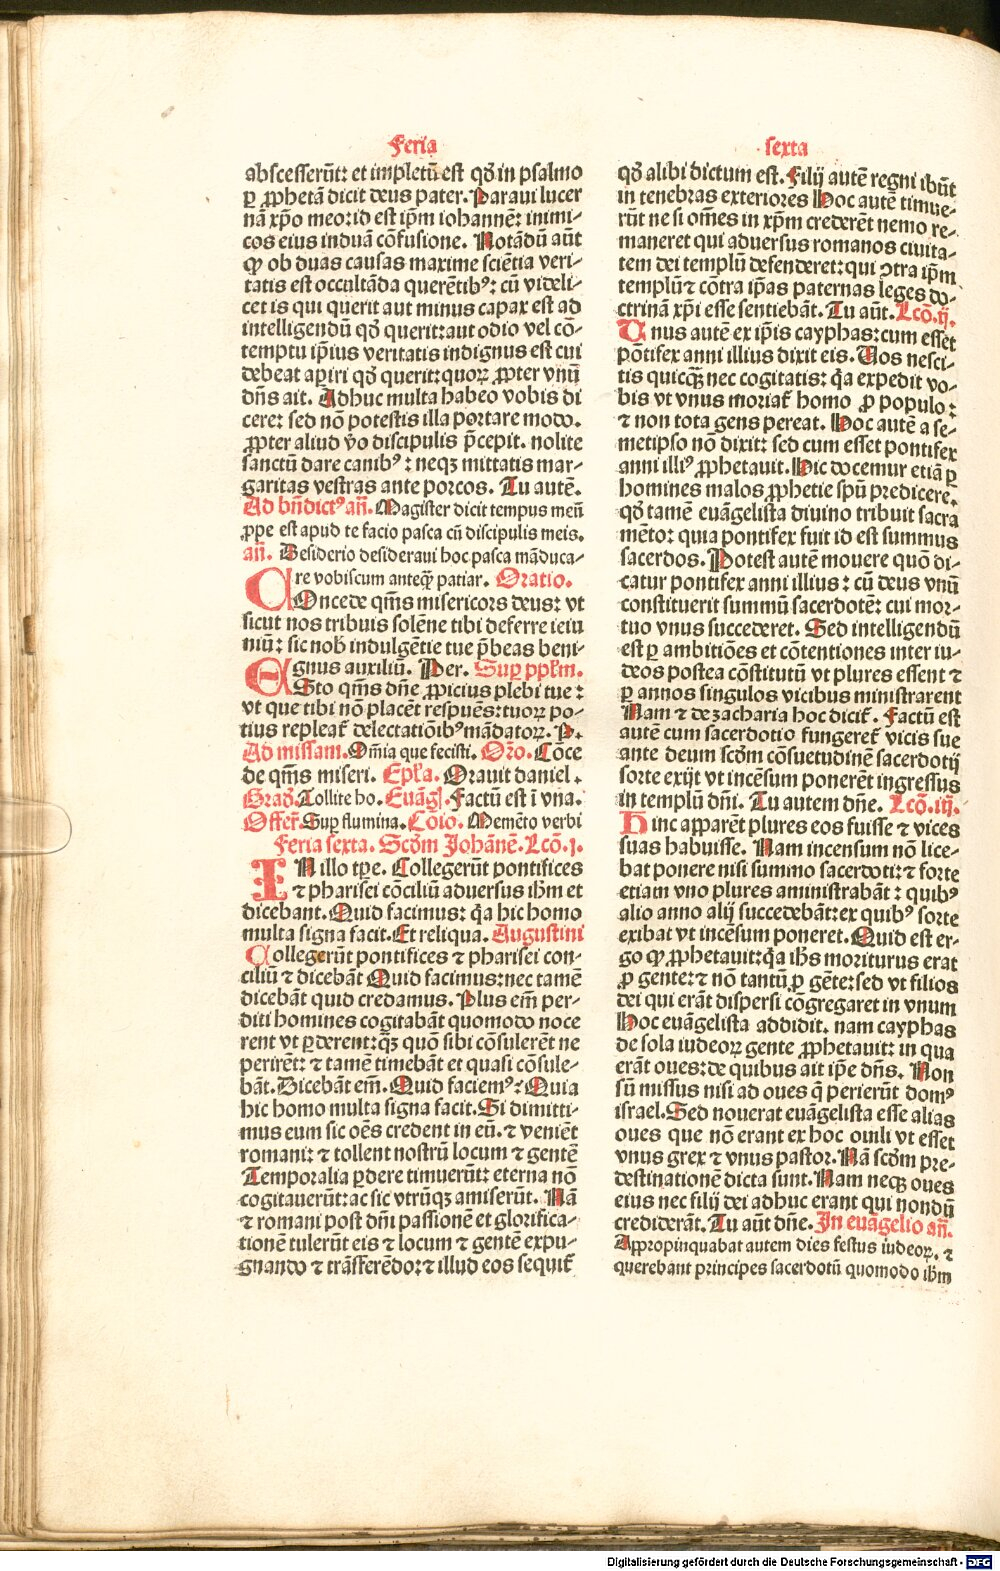 Feria
abscesserūt: et impletū est qđ in psalmo
ꝑ ꝓphetā dicit deus pater. Paraui lucer
nā xp̄o meo: id est ip̄m iohannē: inimi-
cos eius induā cōfusione. Notādū aūt
ꝙ ob duas causas maxime sciētia veri-
tatis est occultāda querētibꝰ: cū videli-
cet is qui querit aut minus capax est ad
intelligendū qđ querit: aut odio vel cō-
temptu ip̄ius veritatis indignus est cui
debeat aꝑiri qđ querit: quoꝝ ꝓpter vnū
dn̄s ait. Adhuc multa habeo vobis di
cere: sed nō potestis illa portare modo.
ꝓpter aliud v̄o discipulis p̄cepit. nolite
sanctū dare canibꝰ: neqꝫ mittatis mar-
garitas vestras ante porcos. Tu autē.
Ad bn̄dictꝰ añ. Magister dicit tempus meū
ꝓpe est apud te facio pasca cū discipulis meis.
añ. Desiderio desideraui hoc pasca māduca-
re vobiscum anteqꝫ patiar. Oratio.
COncede qm̄s misericors deus: vt
sicut nos tribuis solēne tibi deferre ieiu
niū: sic nob̄ indulgētie tue p̄beas beni-
gnus auxiliū. Per. Suꝑ ppl̄m.
ESto qm̄s dn̄e ꝓpicius plebi tue:
vt que tibi nō placēt respuēs: tuoꝝ po-
tius repleat᷑ delectatiōibꝰ mādatoꝝ. P.
Ad missam. Om̄ia que fecisti. Oro. Cōce
de qm̄s miseri. Epl̄a. Orauit daniel.
Grad̄. Tollite ho. Euāgl̄. Factū est ī vna.
Offer̄. Suꝑ flumina. Cōio. Memēto verbi
Feria sexta. Scd̄m Johānē. Lcō. j.
IN illo tp̄e. Collegerūt pontifices
⁊ pharisei cōciliū aduersus ih̄m et
dicebant. Quid facimus: q̄a hic homo
multa signa facit. Et reliqua. Augustini
Collegerūt pontifices ⁊ pharisei con-
ciliū ⁊ dicebāt Quid facimus: nec tamē
dicebāt quid credamus. Plus em̄ per-
diti homines cogitabāt quomodo noce
rent vt ꝑderent: qꝫ̄ quō sibi cōsulerēt ne
perirēt: ⁊ tamē timebāt et quasi cōsule-
bāt. Dicebāt em̄. Quid faciemꝰ: Quia
hic homo multa signa facit. Si dimitti-
mus eum sic oēs credent in eū. ⁊ veniēt
romani: ⁊ tollent nostrū locum ⁊ gentē
Temporalia ꝑdere timuerūt: eterna nō
cogitauerūt: ac sic vtrūqꝫ amiserūt. Nā
⁊ romani post dn̄i passionē et glorifica-
tionē tulerūt eis ⁊ locum ⁊ gentē expu-
gnando ⁊ trāsferēdo: ⁊ illud eos sequit᷑
sexta
qđ alibi dictum est. Filij autē regni ibūt
in tenebras exteriores Hoc autē timue-
rūt ne si om̄es in xp̄m crederēt nemo re-
maneret qui aduersus romanos ciuita-
tem dei templū defenderet: qui ꝯtra ip̄m
templū ⁊ cōtra ip̄as paternas leges do-
ctrinā xp̄i esse sentiebāt. Tu aūt. Lcō. ij.
Unus autē ex ip̄is cayphas: cum esset
pōtifex anni illius dixit eis. Uos nesci-
tis quicqꝫ̄ nec cogitatis: q̄a expedit vo-
bis vt vnus moriat᷑ homo ꝓ populo:
⁊ non tota gens pereat. Hoc autē a se-
metipso nō dixit: sed cum esset pontifex
anni illiꝰ ꝓphetauit. Hic docemur etiā ꝑ
homines malos ꝓphetie spū predicere.
qđ tamē euāgelista diuino tribuit sacra
mēto: quia pontifex fuit id est summus
sacerdos. Potest autē mouere quō di-
catur pontifex anni illius: cū deus vnū
constituerit summū sacerdotē: cui mor-
tuo vnus succederet. Sed intelligendū
est ꝑ ambitiōes et cōtentiones inter iu-
deos postea cōstitutū vt plures essent ⁊
ꝑ annos singulos vicibus ministrarent
Nam ⁊ de zacharia hoc dicit᷑. Factū est
autē cum sacerdotio fungeret᷑ vicis sue
ante deum scd̄m cōsuetudinē sacerdotij
sorte exijt vt incēsum ponerēt ingressus
in templū dn̄i. Tu autem dn̄e. Lcō. iij.
Hinc apparēt plures eos fuisse ⁊ vices
suas habuisse. Nam incensum nō lice-
bat ponere nisi summo sacerdoti: ⁊ forte
etiam vno plures aministrabāt: quibꝰ
alio anno alij succedebāt: ex quibꝰ sorte
exibat vt incēsum poneret. Quid est er-
go ꝙ ꝓphetauit: q̄a ih̄s moriturus erat
ꝓ gente: ⁊ nō tantū ꝓ gēte: sed vt filios
dei qui erāt dispersi cōgregaret in vnum
Hoc euāgelista addidit. nam cayphas
de sola iudeoꝝ gente ꝓphetauit: in qua
erāt oues: de quibus ait ip̄e dn̄s. Non
sū missus nisi ad oues q̄ perierūt domꝰ
israel. Sed nouerat euāgelista esse alias
oues que nō erant ex hoc ouili vt esset
vnus grex ⁊ vnus pastor. Nā scd̄m pre-
destinationē dicta sunt. Nam neqꝫ oues
eius nec filij dei adhuc erant qui nondū
crediderāt. Tu aūt dn̄e. In euāgelio añ.
Appropinquabat autem dies festus iudeoꝝ. ⁊
querebant principes sacerdotū quomodo ih̄m
Digitalisierung gefördert durch die Deutsche Forschungsgemeinschaft - DFG